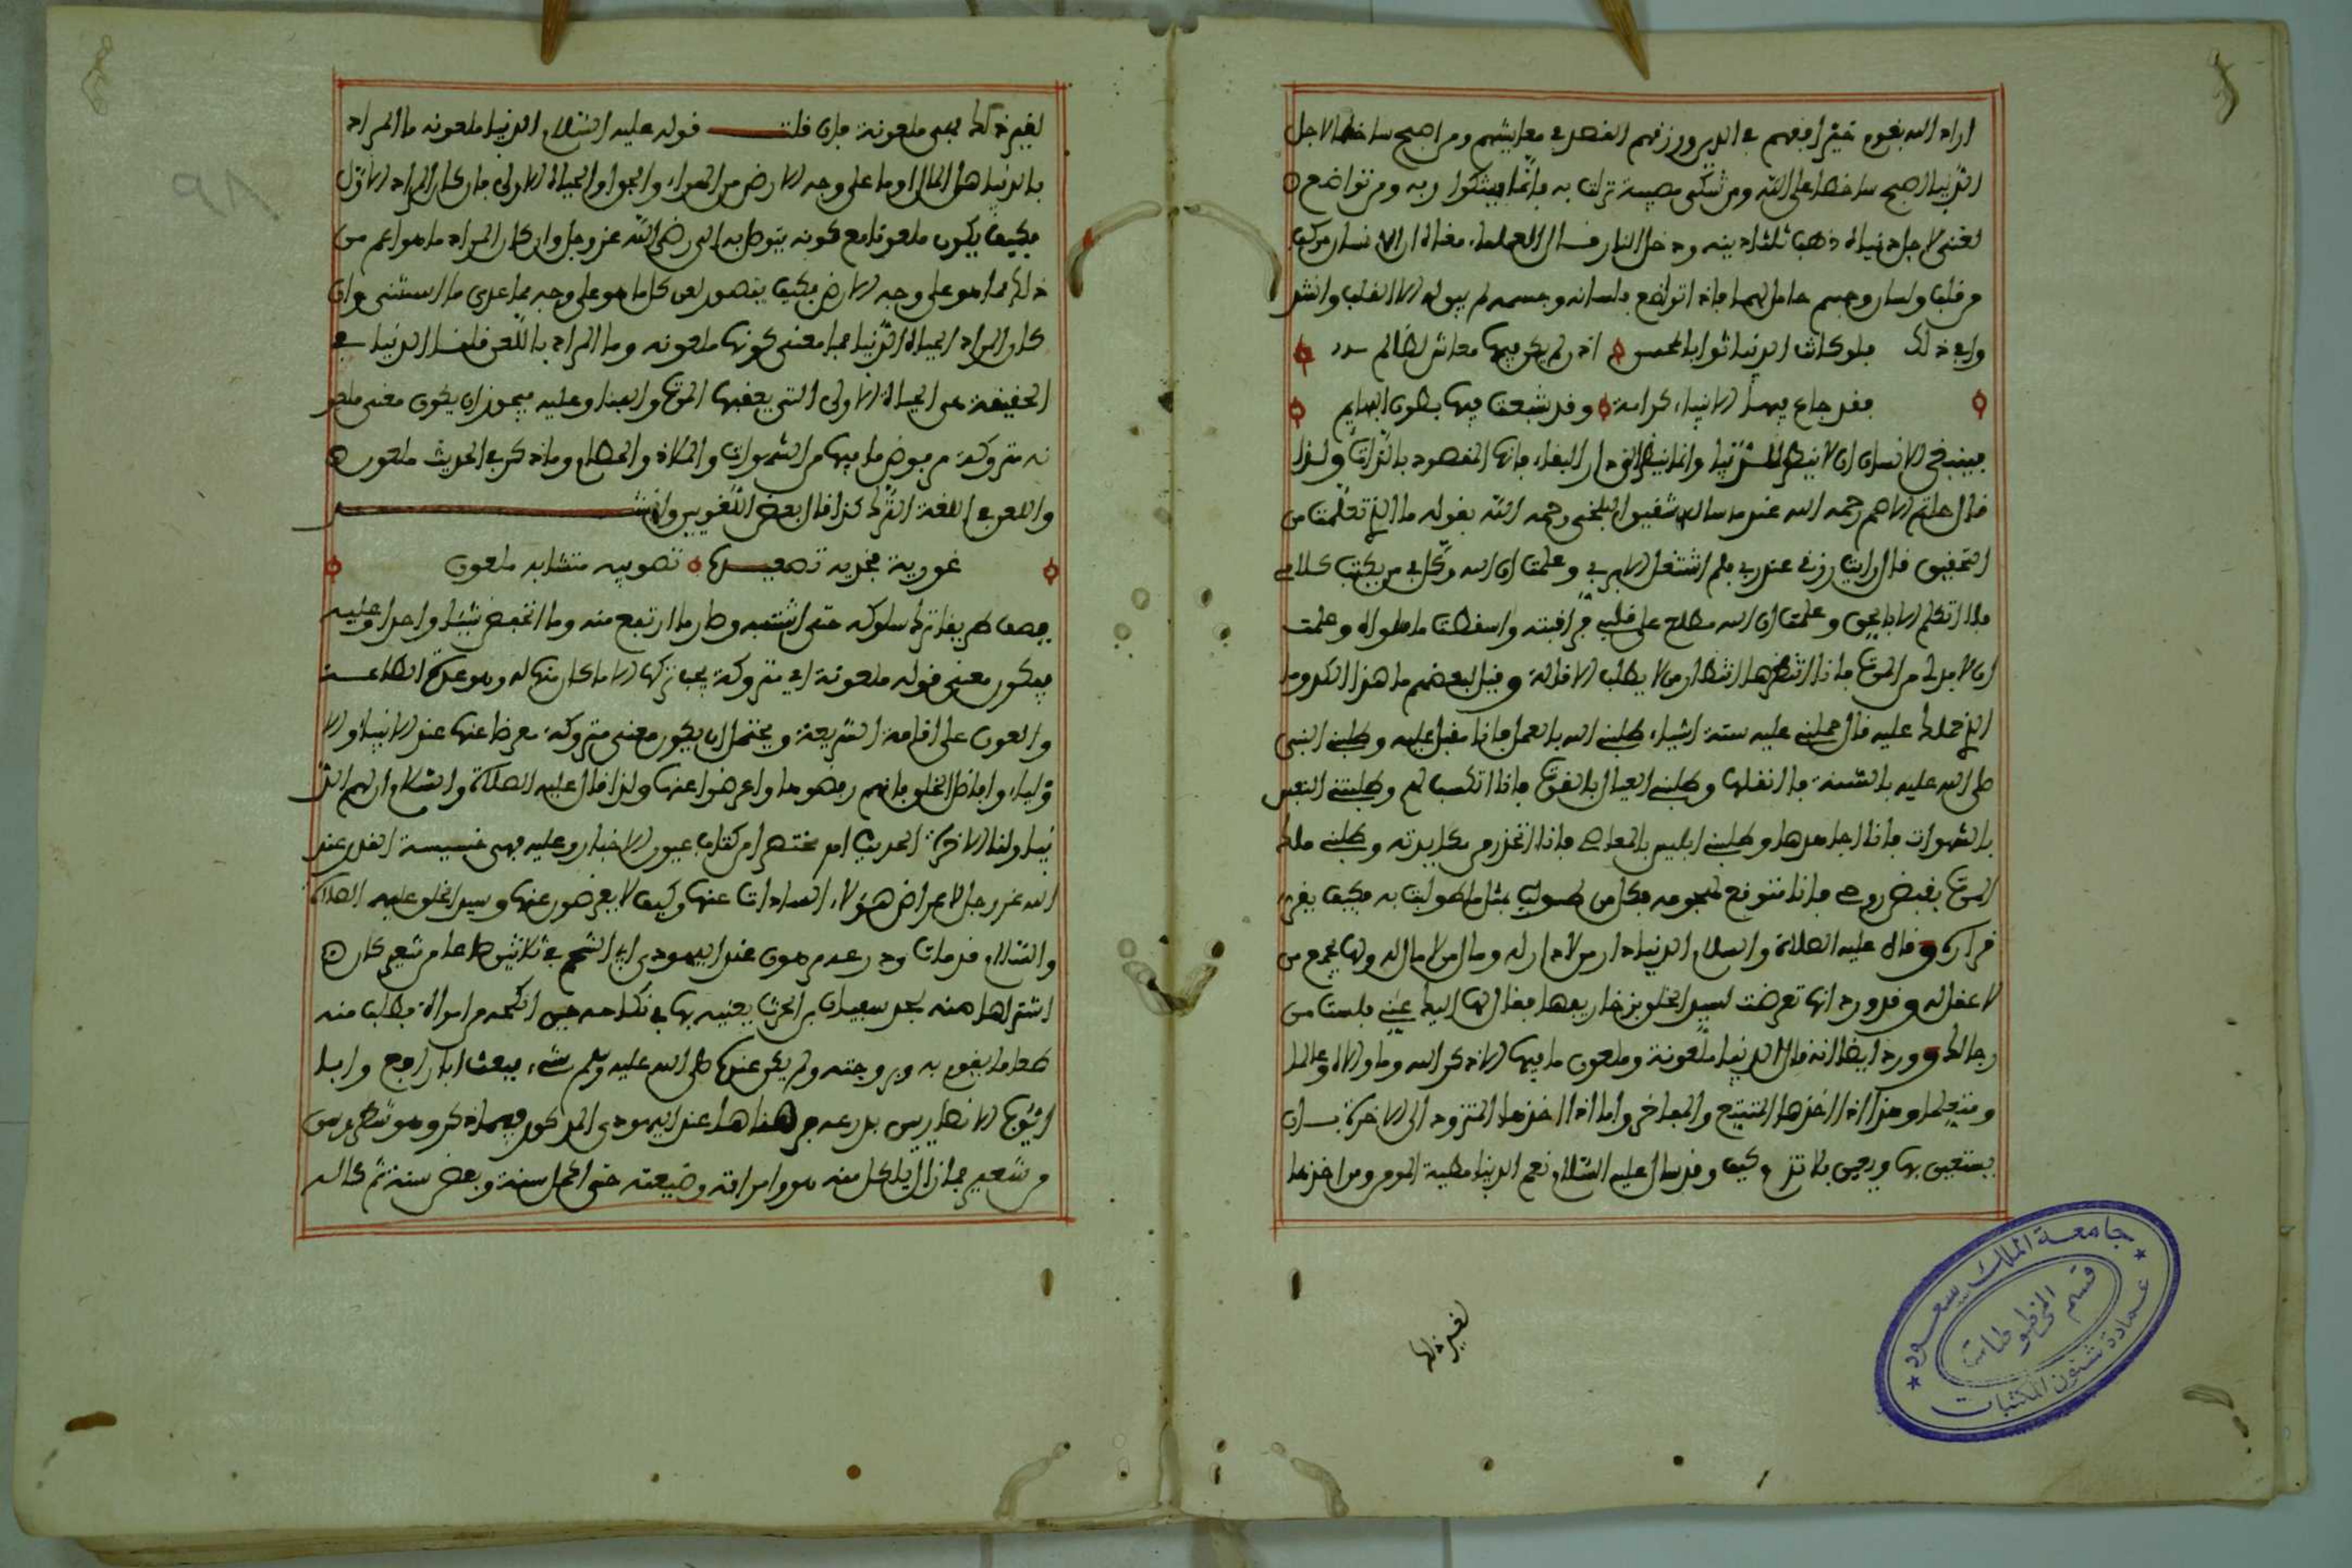 اراد الله بقوم خيرا افقههم في الدين ورزقهم القصد في معايشهم ومن اصبح ساخطا لاجل
الدنيا اصبح ساخطا على الله ومن شكى مصيبة نزلت به فانما يشكوا ربه ومن تواضع
لغني لاجل دنياه ذهب ثلثا دينه ودخل النار قال العلماء معناه ان الانسان مركب
من قلب ولسان وجسم حامل لهما فاذا تواضع بلسانه وجسمه لم يبق له الا القلب وانشد
وفي ذلك فلو كانت الدنيا ثوابا لمحسن اذا لم يكن فيها معاش لظالم
فقد جاع فيها الانبياء كرامة وقد شبعت فيها بطون البهايم
فينبغي للانسان ان لا ينظر للدنيا وانما ينظر الى دار البقاء فانها المقصود بالذات ولذا
قال حاتم الاصم رحمه الله عندما ساله شقيق البلخي رحمه الله بقوله ما الذي تعلمت من
التحقيق قال رايت رزقي عند ربي فلم اشتغل الا بربي وعلمت ان الله وكل بي من يكتب كلامي
فلا اتكلم الا بالحق وعلمت ان الله مطلع على قلبي فراقبته واسقطت ما سواه وعلمت
ان لابد لي من الموت فانا انتظرها انتظار من لا يطلب الاقالة وقيل لبعضهم ما هذا الكد وما
الذي حملك عليه قال حملني عليه ستة اشياء طلبني الله بالعمل فانا مقبل عليه وطلبني النبي
صلى الله عليه بالسنة فانا انقلها وطلبني العيال بالقوت فانا اتكسب لهم وطلبتني النفس
بالشهوات فانا اجاهدها وطلبني ابليس بالمعاصي فانا اتحذر من مكايدته وطلبني ملك
الموت بقبض روحي فانا متوقع لهجومه فكل من طولب بمثل ما طولبت به فكيف يقر
قراره وقال عليه الصلاة والسلام الدنيا دار من لا دار له ومال من لا مال له ولها يجمع من
لا عقل له وقد ورد انها تعرضت لسيد الخلق بزخاريفها فقال لها اليك عني فلست من
رجالك وورد ايضا انه قال الدنيا ملعونة وملعون ما فيها الا ذكر الله وما والاه وعالما
ومتعلما وهذا اذا اخذها المتمتع والمفاخر واما اذا اخذها المتزود الى الاخرة بان
يستعين بها ويعين فلا تذم وكيف وقد قال عليه السلام نعم الدنيا مطية المومن ومن اخذها
لغير ذلك
لغير ذلك فهي ملعونة فان قلت قوله عليه السلام الدنيا ملعونة ما المراد
بالدنيا هل المال او ما على وجه الارض من الهواء والجو او الحياة الاولى فان كان المراد الاول
فكيف يكون ملعونا مع كونه يتوصل به الى رضى الله عز وجل وان كان المراد ما هو اعم من
ذلك مما هو على وجه الارض فكيف يتصور لعن كل ما هو على وجه فما عدى ما استثنى وان
كان المراد الحياة الدنيا فما معنى كونها ملعونه وما المراد باللعن قلنا الدنيا في
الحقيقة هي الحياة الاولى التي يعقبها الموت والفنا وعليه فيجوز ان يكون معنى ملعو
نه متروكة مرفوض ما فيها من الشهوات والملاذ والحطام وما ذكر في الحديث ملعون
واللعن في اللغة الترك كذا قال بعض اللغويين وانشد
غورية نجدية تصعيدها تصويبه متشابه ملعون
يصف طريقا ترك سلوكه حتى اشتبه وصار ما ارتفع منه وما انخفض شيئا واحدا وعليه
فيكون معنى قوله ملعونة اي متروكة يجب تركها الا ما كان منها لله وهو على الطاعة
والعون على اقامة الشريعة ويحتمل ان يكون معنى متروكة معرضا عنها عند الانبياء والا
ولياء وافاضل الخلق فانهم رفضوها واعرضوا عنها ولذا قال عليه الصلاة والسلام لهم الد
نيا ولنا الاخرة الحديث اه مختصرا من كتاب عيون الاخبار وعليه فهي خسيسة القدر عند
الله عز وجل لاعراض هؤلاء السادات عنها وكيف لا يعرضون عنها وسيد الخلق عليه الصلاة
والسلام قد مات ودرعه مرهون عند اليهودي ابي الشحم في ثلاثين صاعا من شعير كان
اشتراها منه بعد سعيدان بن الحرث يعنيه بها في نكاحه حين انكحه من امراة فطلب منه
طعاما يقوم به وبزوجته ولم يكن عنده صلى الله عليه وسلم شيء فبعث ابا رافع وابا
ايوب الانصاريين بدرعه فرهناها عند اليهودي المذكور فيما ذكر وهو شطر وسق
من شعير فما زال ياكل منه هو وامراته وضيعته حتى اكمل سنة وبعض سنة ثم كاله
جامعة الملك سعود
قسم المخطوطات
عمادة شئون المكتبات